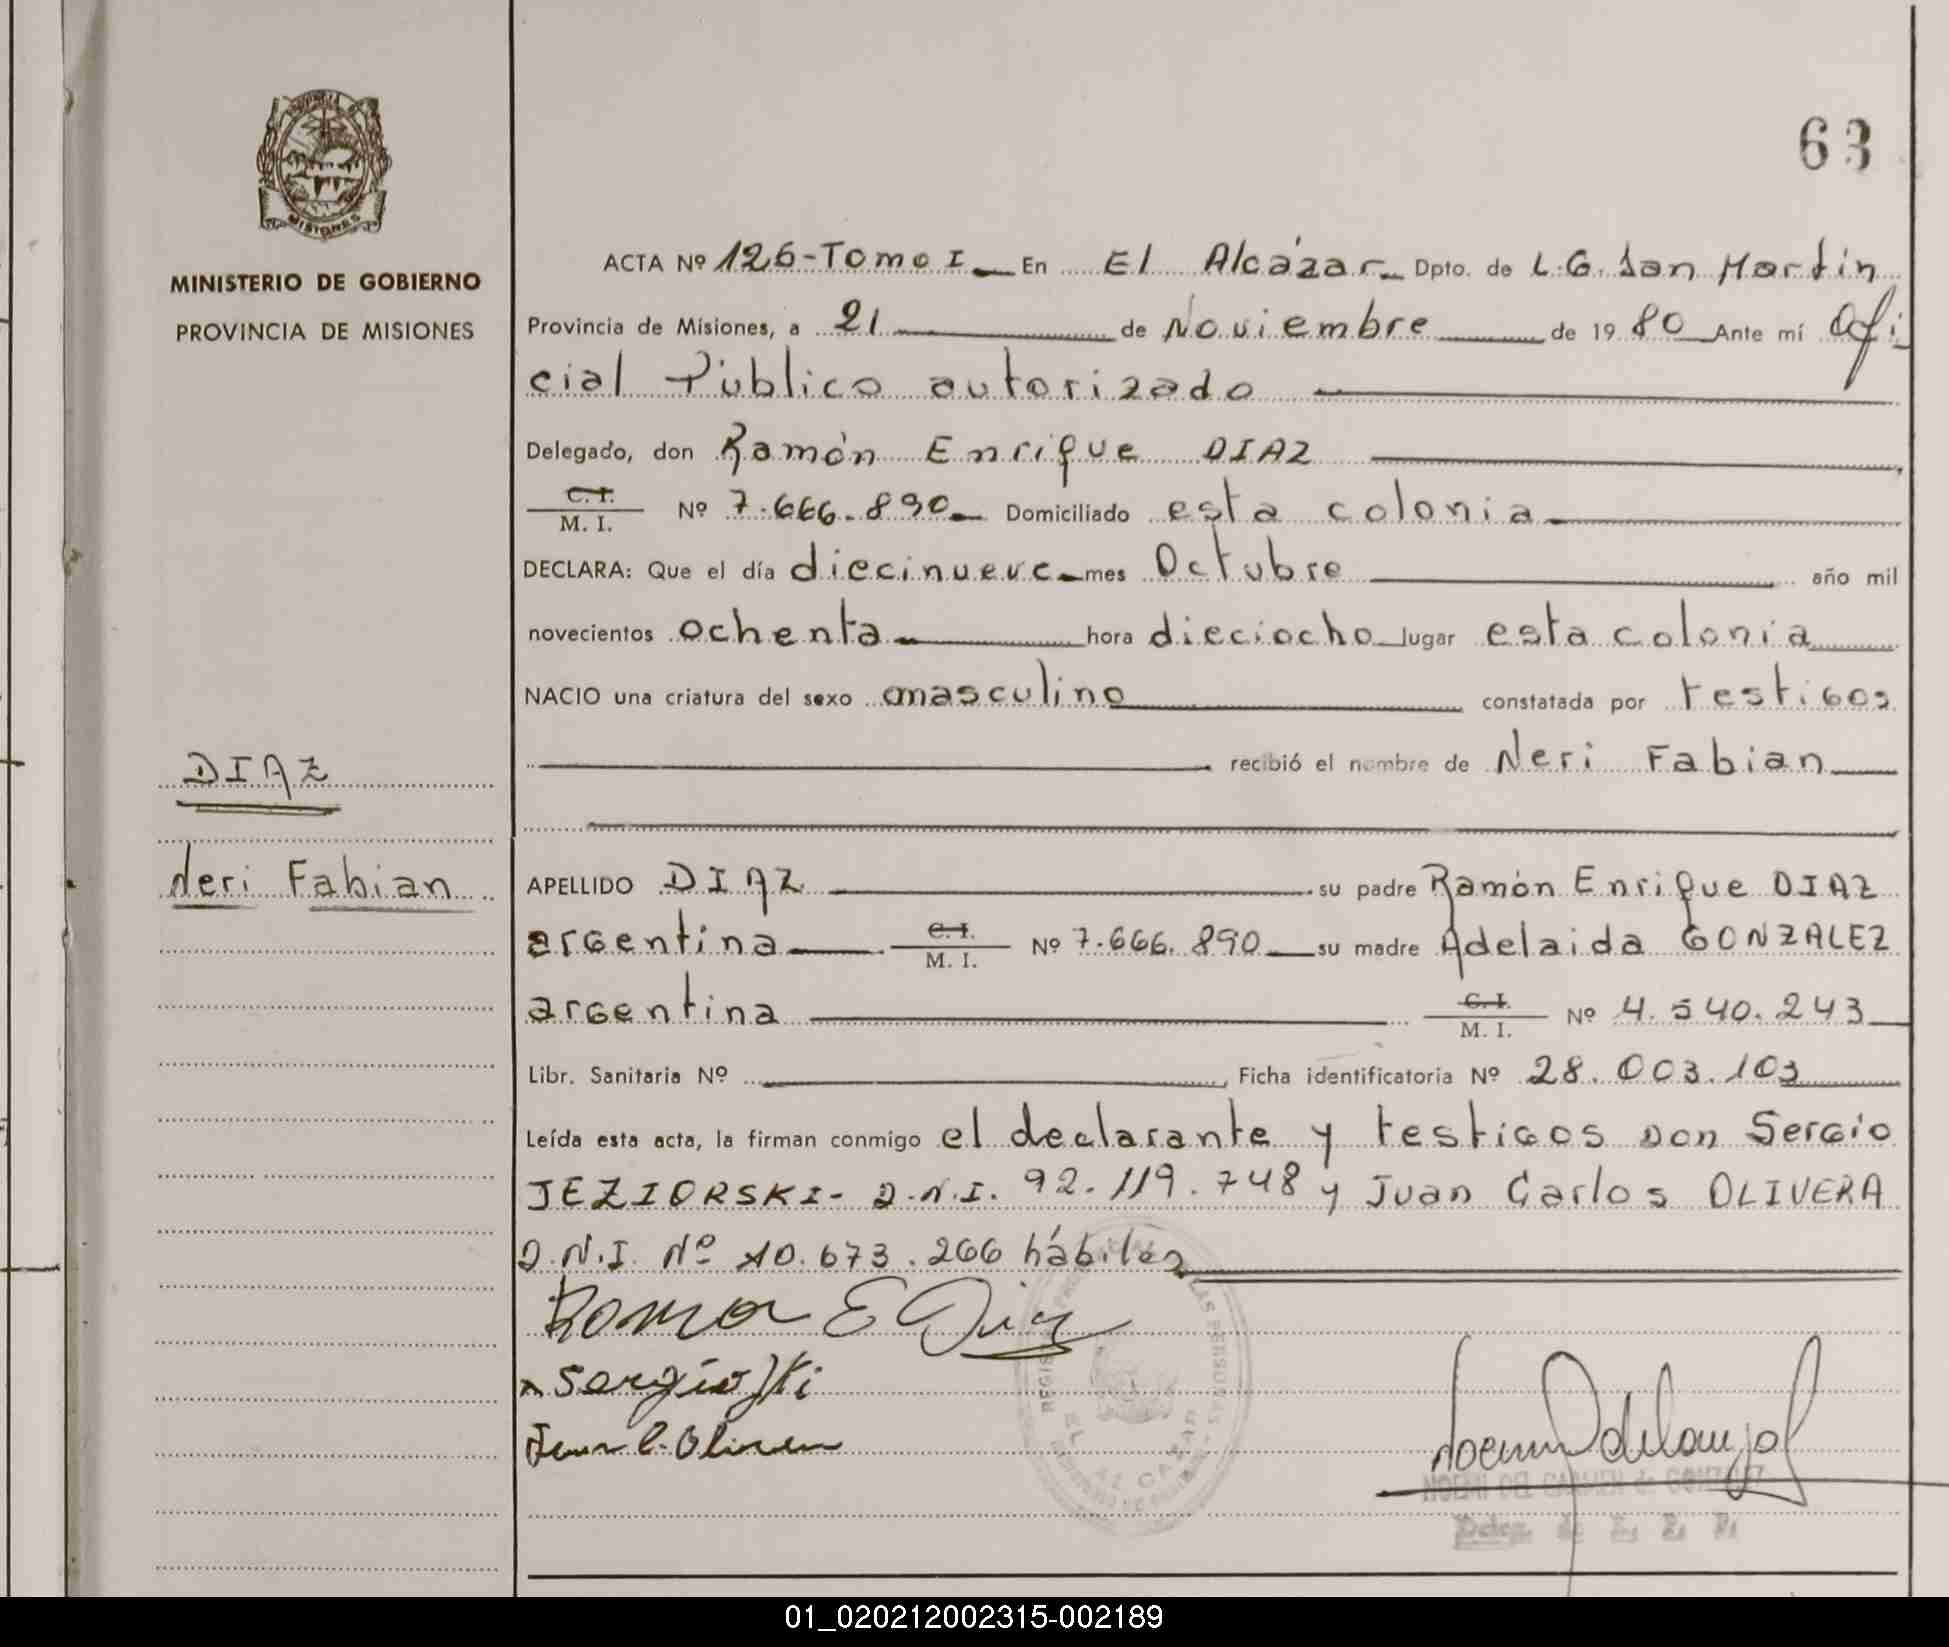 63
MISIONES
MINISTERIO DE GOBIERNO
PROVINCIA DE MISIONES
DIAZ
Neri Fabian
ACTA Nº 126-Tomo I En El Alcázar Dpto. de L.G. San Martín
Provincia de Misiones, a 21 de Noviembre de 1980 Ante mí Ofi
cial Público autorizado
Delegado, don Ramón Enrique DIAZ
C.I. M. I. Nº 7.666.890 Domiciliado esta colonia
DECLARA: Que el día diecinueve mes Octubre año mil
novecientos ochenta hora dieciocho lugar esta colonia
NACIO una criatura del sexo masculino constatada por testigos
recibió el nombre de Neri Fabian
APELLIDO DIAZ su padre Ramón Enrique DIAZ
argentina C.I. M. I. Nº 7.666.890 su madre Adelaida GONZALEZ
argentina C.I. M. I. Nº 4.540.243
Libr. Sanitaria Nº Ficha identificatoria Nº 28.003.103
Leída esta acta, la firman conmigo el declarante y testigos Don Sergio
JEZIORSKI- D.N.I. 92.119.748 y Juan Carlos OLIVERA
D.N.I. Nº 10.673.266 hábiles
Ramon E Diaz
Sergio
Juan C. Olivera
EL ALCAZAR
NOEMI DEL CARMEN de GONZALEZ
01_020212002315-002189